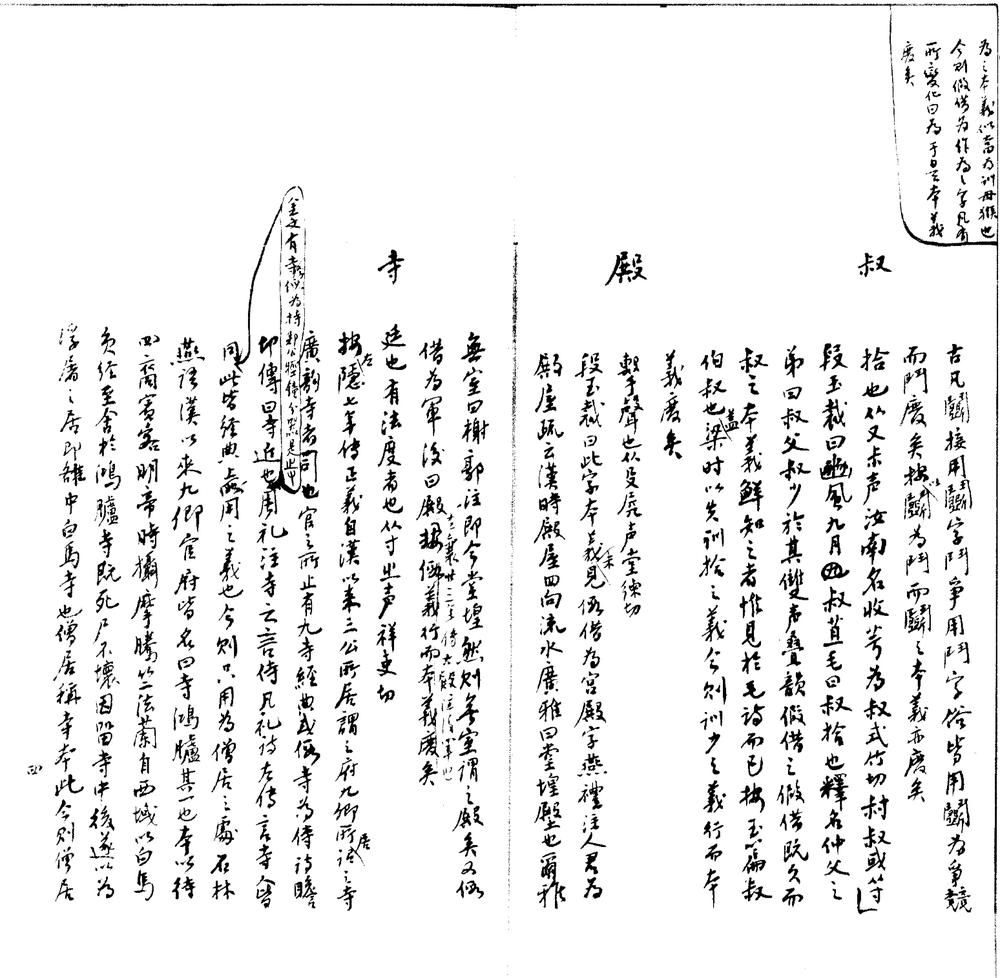 為之本義似當為訓母猴也
今則假借為作為之字凡有
所變化曰為于是云本義
廢矣
古凡鬭接用鬭字鬥爭用鬥字俗皆用鬭為爭競
而鬥廢矣按以鬭為鬥而鬭之本義亦廢矣
叔
拾也从又尗声汝南名收芋為叔式竹切村叔或从寸
段玉裁曰豳風九月叔苴毛曰叔拾也釋名仲父之
弟曰叔父叔少於其雙声疊韻假借之假借既久而
叔之本義鮮知之者惟見於毛詩而已按玉篇叔
伯叔也蓋梁时以失訓拾之義今則訓少之義行而本
義廢矣
殿
擊声也从殳𡱂声堂練切
段玉裁曰此字本義未見假借為宮殿字燕禮注人君為
殿屋疏云漢時殿屋四向流水廣雅曰堂堭壂也爾雅
無室曰榭郭注即今堂堭然則無室謂之殿矣又假
借為軍後曰殿按假義行而本義廢矣
寺
廷也有法度者也从寸㞢声祥吏切
按左隱七年傳正義自漢以來三公所居謂之府九卿所居謂之寺
廣韵寺者司也官之所止有九寺經典或假寺為侍詩瞻
卬傳曰寺近也周礼注寺之言侍凡礼詩左傳言寺人皆
同此皆經典叚用之義也今則只用為僧居之處石林
燕語漢以來九卿官府皆名曰寺鴻臚其一也本以待
四裔賓客明帝時攝摩騰竺法蘭自西域以白馬
負經至舍於鴻臚寺既死尸不壞因留寺中後遂以為
浮屠之居即雒中白馬寺也僧居稱寺本此今則僧居
四